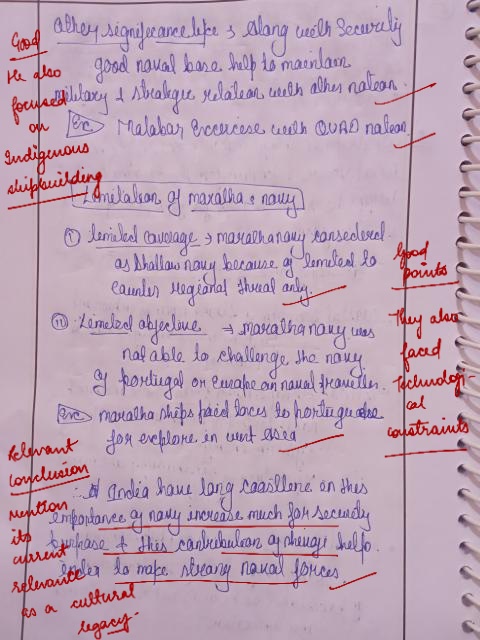 Good
He also
focused
on
Indigenous
shipbuilding
Other significance like → Along with Security
good naval base help to maintain
military & strategic relation with other nation.
Ex: Malabar Excercise with QUAD nation
Limitation of maratha navy
(i) limited coverage → maratha navy considered
as shallow navy because of limited to
counter regional threat only.
Good
points
(ii) Limited objective → maratha navy was
not able to challenge the navy
of Portugal or europe on naval frontier.
Ex: maratha ships faced loses to portuguese
for explore in west asia
They also
faced
technologi-
cal
constraints
Relevant
conclusion
mention
its
current
relevance
as a cultural
legacy.
India have long coastline on this
importance of navy increase much for security
purpose & this contribution of shivaji help
india to make strong naval forces.